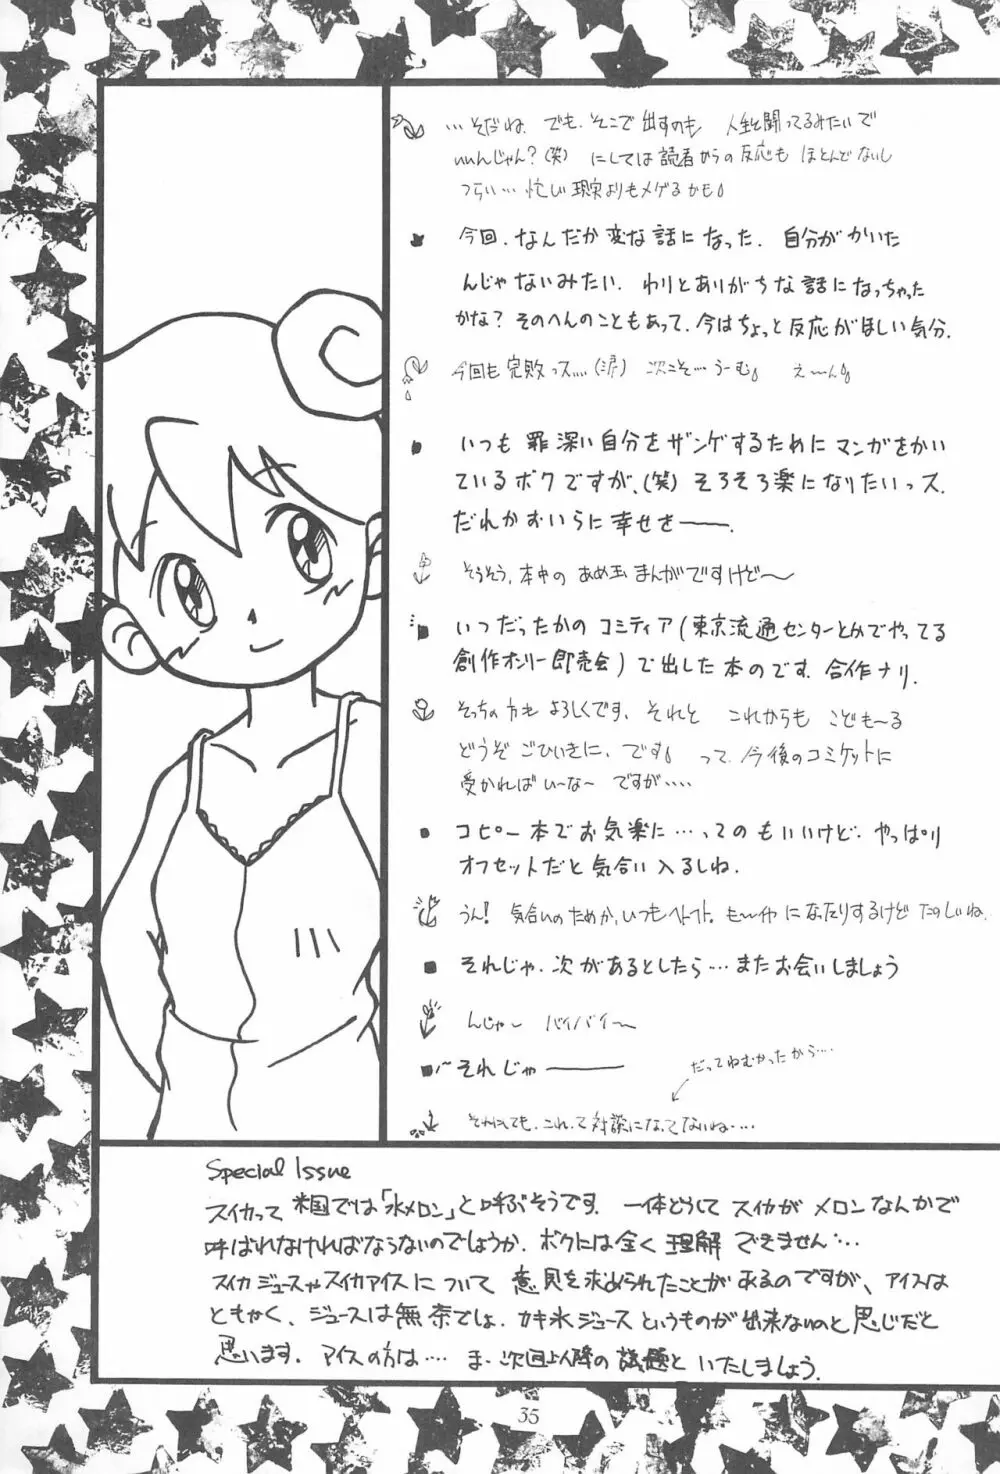 …そだね。でも、そこで出すのも 人生と闘ってるみたいで
いいんじゃん?(笑) にしては読者からの反応も ほとんどないし
つらい…忙しい現実よりもメゲるかも。
今回、なんだか変な話になった。自分がかいた
んじゃないみたい。わりとありがちな話になっちゃった
かな?そのへんのこともあって、今はちょっと反応がほしい気分。
今回も完敗っス…(涙) 次こそ…うーむ。 え〜ん。
いつも罪深い自分をザンゲするためにマンガをかい
ているボクですが、(笑)そろそろ楽になりたいっス。
だれかおいらに幸せを――。
そうそう、本中のあめ玉まんがですけど〜
いつだったかのコミティア(東京流通センターとかでやってる
創作オンリー即売会)で出した本のです。合作ナリ。
そっちの方もよろしくです。それと これからも こども〜る
どうぞごひいきに。です。 って、今後のコミケットに
受かればい〜な〜ですが‥‥
コピー本でお気楽に…ってのもいいけど、やっぱり
オフセットだと気合い入るしね。
うん!気合いのためか、いつもヘトヘト。も〜イヤになったりするけど たのしいね。
それじゃ、次があるとしたら…またお会いしましょう
んじゃ〜 バイバイ〜
〜それじゃ――
だってねむかったから…
それにしても、これって対談になってないね‥‥
Special Issue
スイカって米国では「水メロン」と呼ぶそうです。一体どうしてスイカがメロンなんかで
呼ばれなければならないのでしょうか。ボクには全く理解できません…
スイカジュースやスイカアイスについて意見を求められたことがあるのですが、アイスは
ともかく、ジュースは無茶でしょ。カキ氷ジュースというものが出来ないのと同じだと
思います。アイスの方は…ま、次回以降の議題といたしましょう。
35